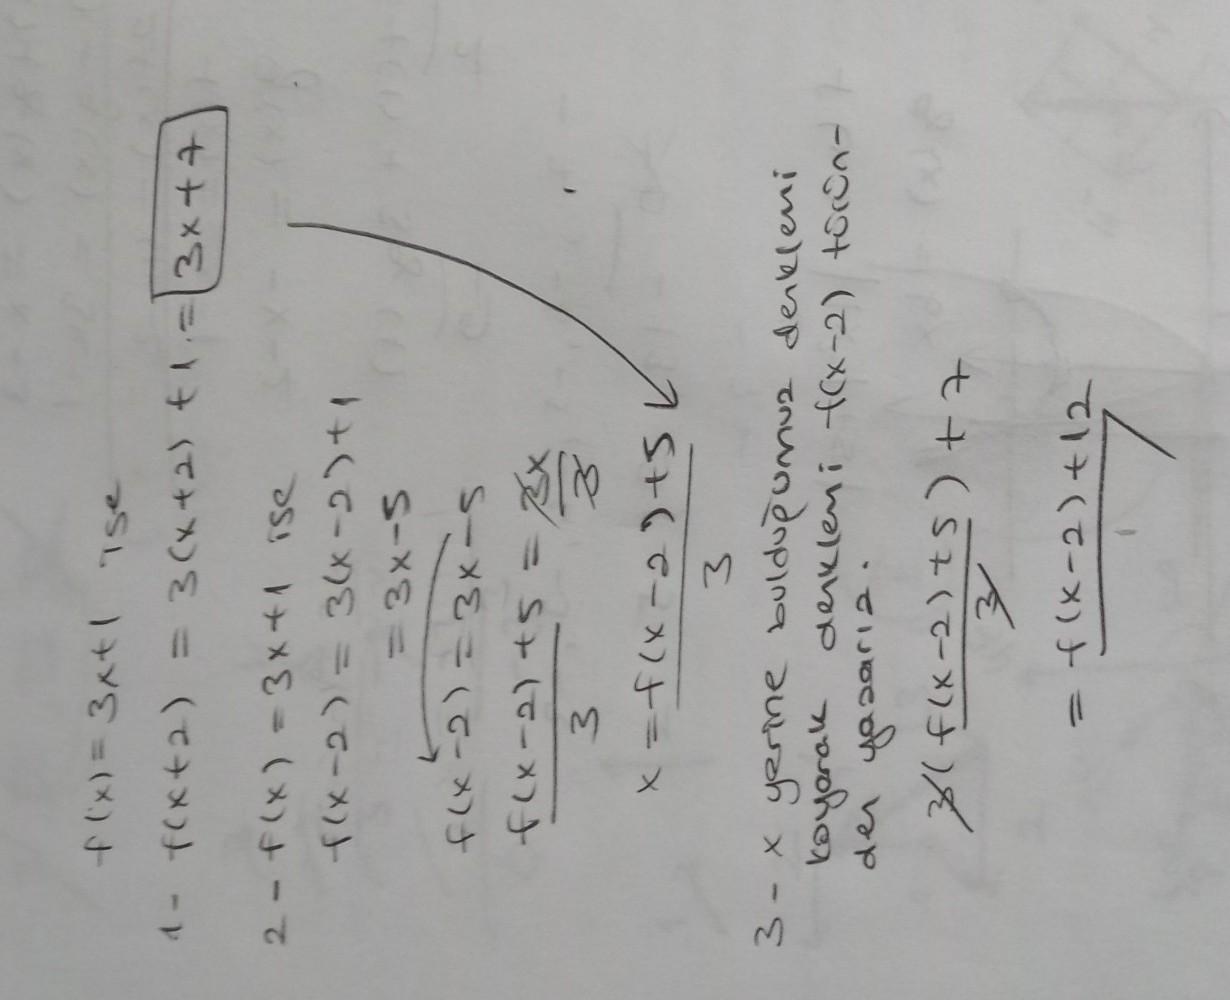 f(x) = 3x+1 ise
1- f(x+2) = 3(x+2) +1 = 3x+7
2- f(x) = 3x+1 ise
f(x-2) = 3(x-2)+1
= 3x-5
f(x-2) = 3x-5
f(x-2)+5 / 3 = 3x / 3
x = f(x-2)+5 / 3
3- x yerine bulduğumuz denklemi
koyarak denklemi f(x-2) türün-
den yazarız.
3(f(x-2)+5 / 3) + 7
= f(x-2)+12